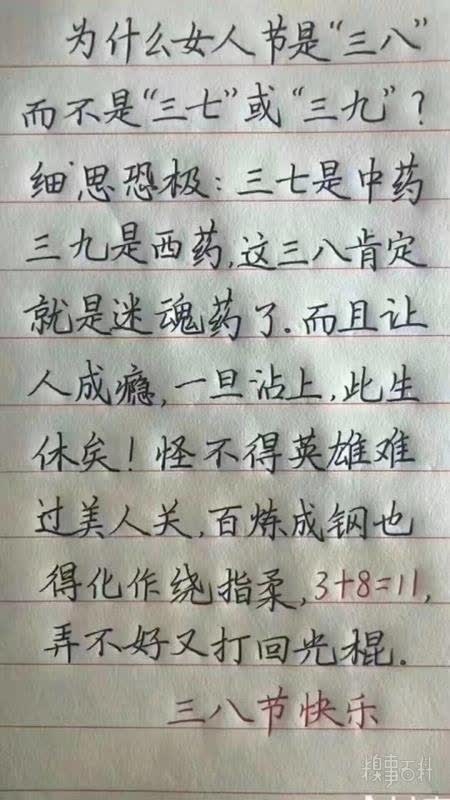 为什么女人节是“三八”
而不是“三七”或“三九”？
细思恐极：三七是中药
三九是西药，这三八肯定
就是迷魂药了．而且让
人成瘾，一旦沾上，此生
休矣！怪不得英雄难
过美人关，百炼成钢也
得化作绕指柔，3+8=11，
弄不好又打回光棍．
三八节快乐
糗事百科